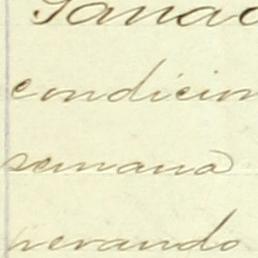 Ganad
condicion
semana
nerando